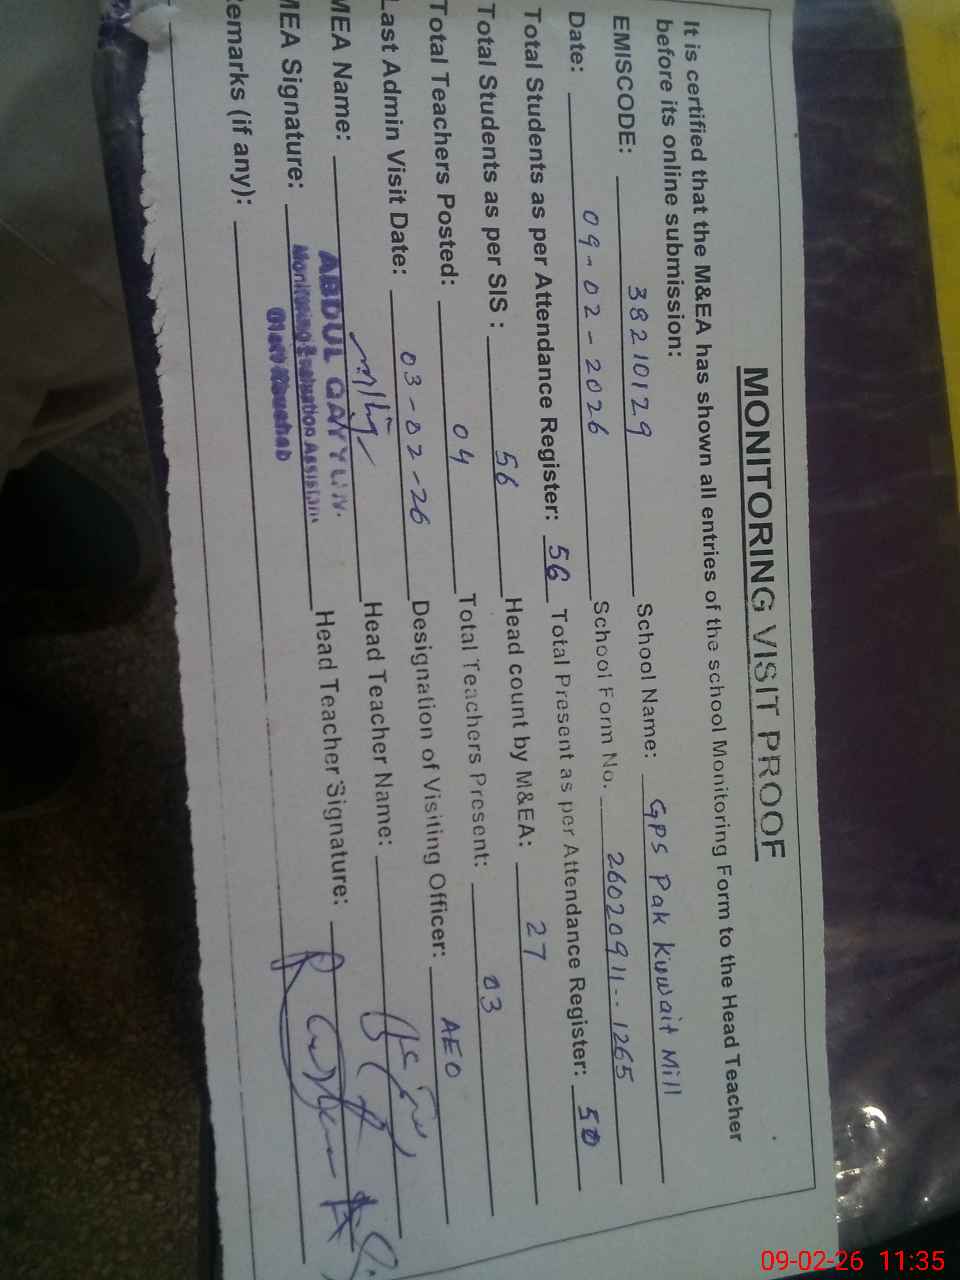 MONITORING VISIT PROOF
It is certified that the M&EA has shown all entries of the school Monitoring Form to the Head Teacher
before its online submission:
EMISCODE: 38210129 School Name: GPS Pak Kuwait Mill
Date: 09-02-2026 School Form No. 26020911--1265
Total Students as per Attendance Register: 56 Total Present as per Attendance Register: 50
Total Students as per SIS : 56 Head count by M&EA: 27
Total Teachers Posted: 04 Total Teachers Present: 03
Last Admin Visit Date: 03-02-26 Designation of Visiting Officer: AEO
MEA Name: ABDUL QAYYUM Head Teacher Name:
MEA Signature: Monitoring & Evaluation Assistant Head Teacher Signature:
Distt Khushab
emarks (if any):
09-02-26 11:35